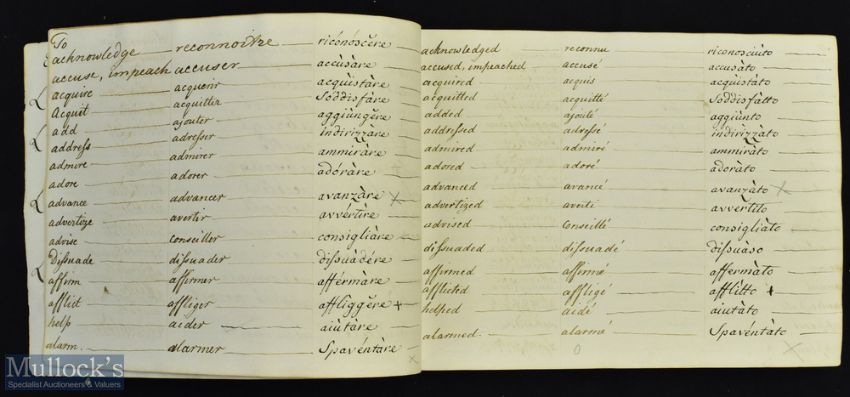 To
acknowledge reconnoître riconóscĕre
accuse, impeach accuser accùsàre
acquire acquerir acquistàre
Acquit acquitter Soddisfàre
add ajouter aggiùngĕre
addreſs adreſser indirizzàre
admire admirer ammiràre
adore adorer adóràre
advance avancer avanzàre X
advertize avertir avvértire
advise Conseiller consigliàre
Diſsuade diſsuader diſsuàdére
affirm affirmer afférmàre
afflict affliger affliggĕre +
help aider aiutàre
alarm alarmer Spavéntàre
x
acknowledged reconnu riconosciùto
accused, impeached accusé accusàto
acquired acquis acquistàto
acquitted acquitté Soddisfàtto
added ajouté aggiùnto
addreſsed adreſsé indirizzàto
admired admiré ammiràto
adored adoré adoràto
advanced avancé avanzàto X
advertized averti avvertìto
advised Conseillé consigliàto
diſsuaded diſsuadé diſsuàso
affirmed affirmé affermàto
afflicted affligé afflìtto +
helped aidé aiutàto
alarmed alarmé Spavéntàto
0 X
Mullock's
Specialist Auctioneers & Valuers